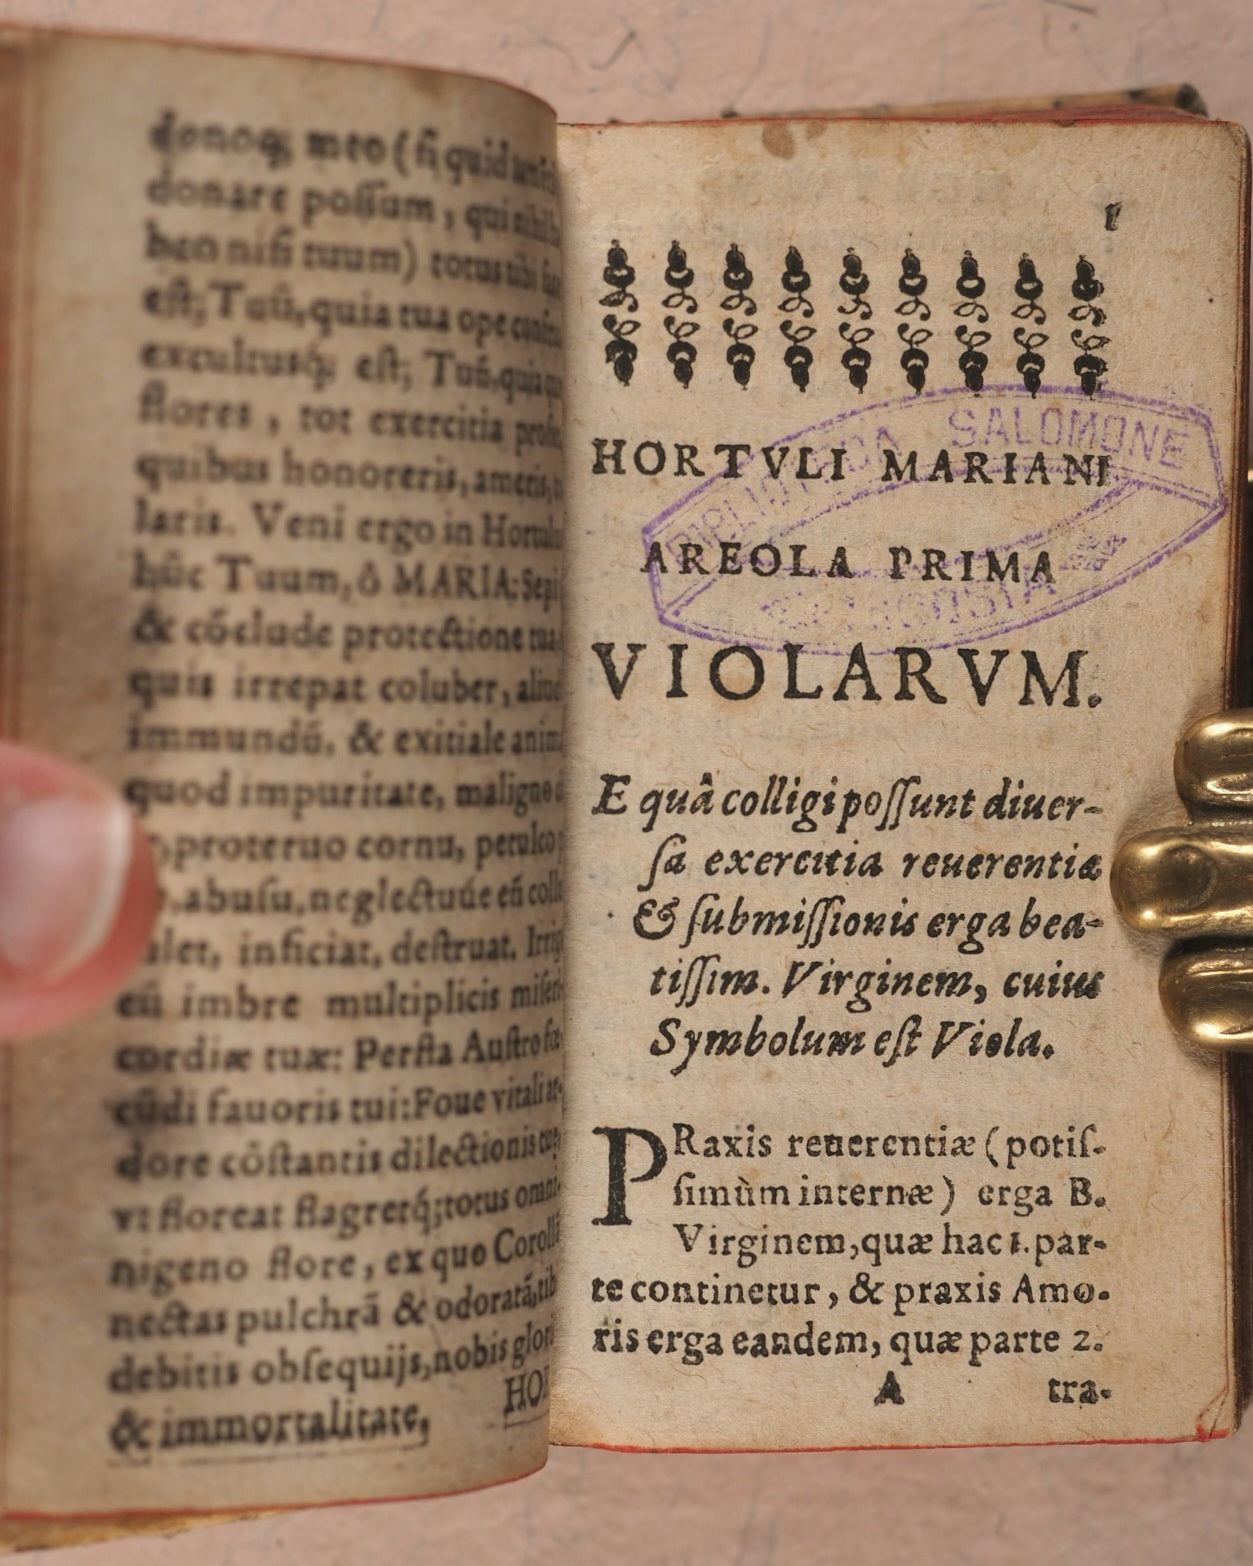 donoq; meo (si quid
donare possum, qui nihil
beo nisi tuum) totus tibi
est; Tuũ, quia tua ope
excultusq́; est; Tuũ, quia
flores, tot exercitia
quibus honoreris, ameris,
laris. Veni ergo in
hũc Tuum, ô MARIA: Sepi
& cóclude protectione tua,
quis irrepat coluber,
immundũ, & exitiale
quod impuritate,
proteruo cornu, petulco
abusu, neglectuúe eñ
inficiat, destruat.
eũ imbre multiplicis
cordiæ tuæ: Persta Austro
cũdi fauoris tui: Foue vitali ar-
dore cõstantis dilectionis
vt floreat flagretq́; totus omni-
nigeno flore, ex quo
nectas pulchrã & odoratã,
debitis obsequijs, nobis
& immortalitate,
1
HORTVLI MARIANI
AREOLA PRIMA
VIOLARVM.
E quâ colligi poſſunt diuer-
ſa exercitia reuerentiæ
& ſubmiſſionis erga bea-
tiſſim. Virginem, cuius
Symbolum eſt Viola.
PRaxis reuerentiæ (potiſ-
ſimùm internæ) erga B.
Virginem, quæ hac 1. par-
te continetur, & praxis Amo-
ris erga eandem, quæ parte 2.
A tra-
SALOMONE